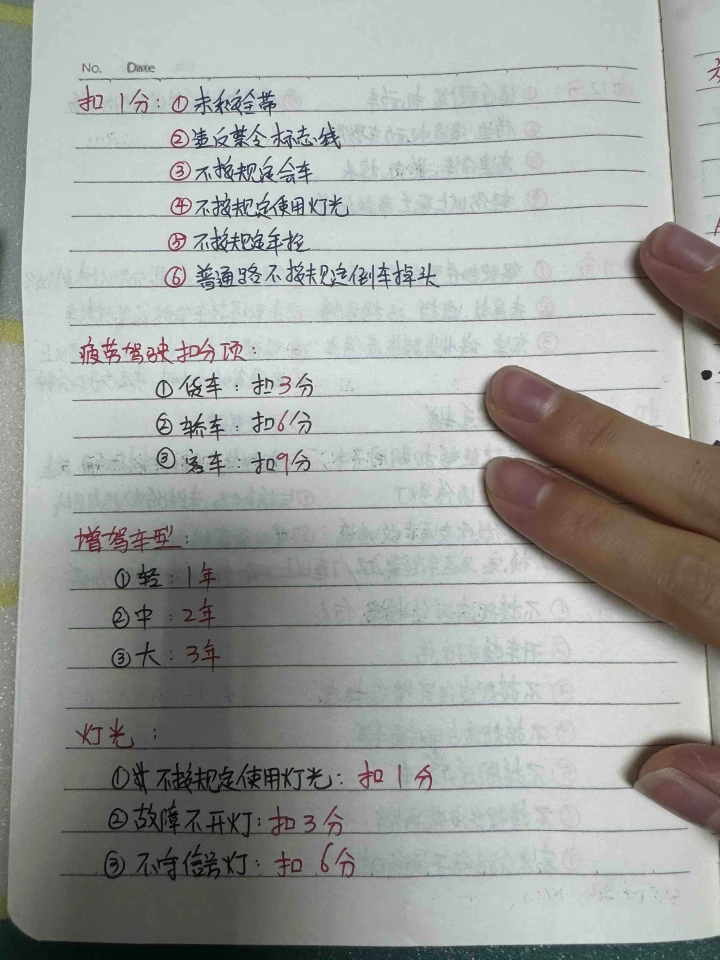 No. Date
扣 1分: ①未系安全带
②违反禁令标志线
③不按规定会车
④不按规定使用灯光
⑤不按规定年检
⑥普通路不按规定倒车掉头
疲劳驾驶扣分项:
①货车: 扣3分
②轿车: 扣6分
③客车: 扣9分
增驾车型:
①轻: 1年
②中: 2年
③大: 3年
灯光:
①不按规定使用灯光: 扣1分
②故障不开灯: 扣3分
③不守信号灯: 扣6分